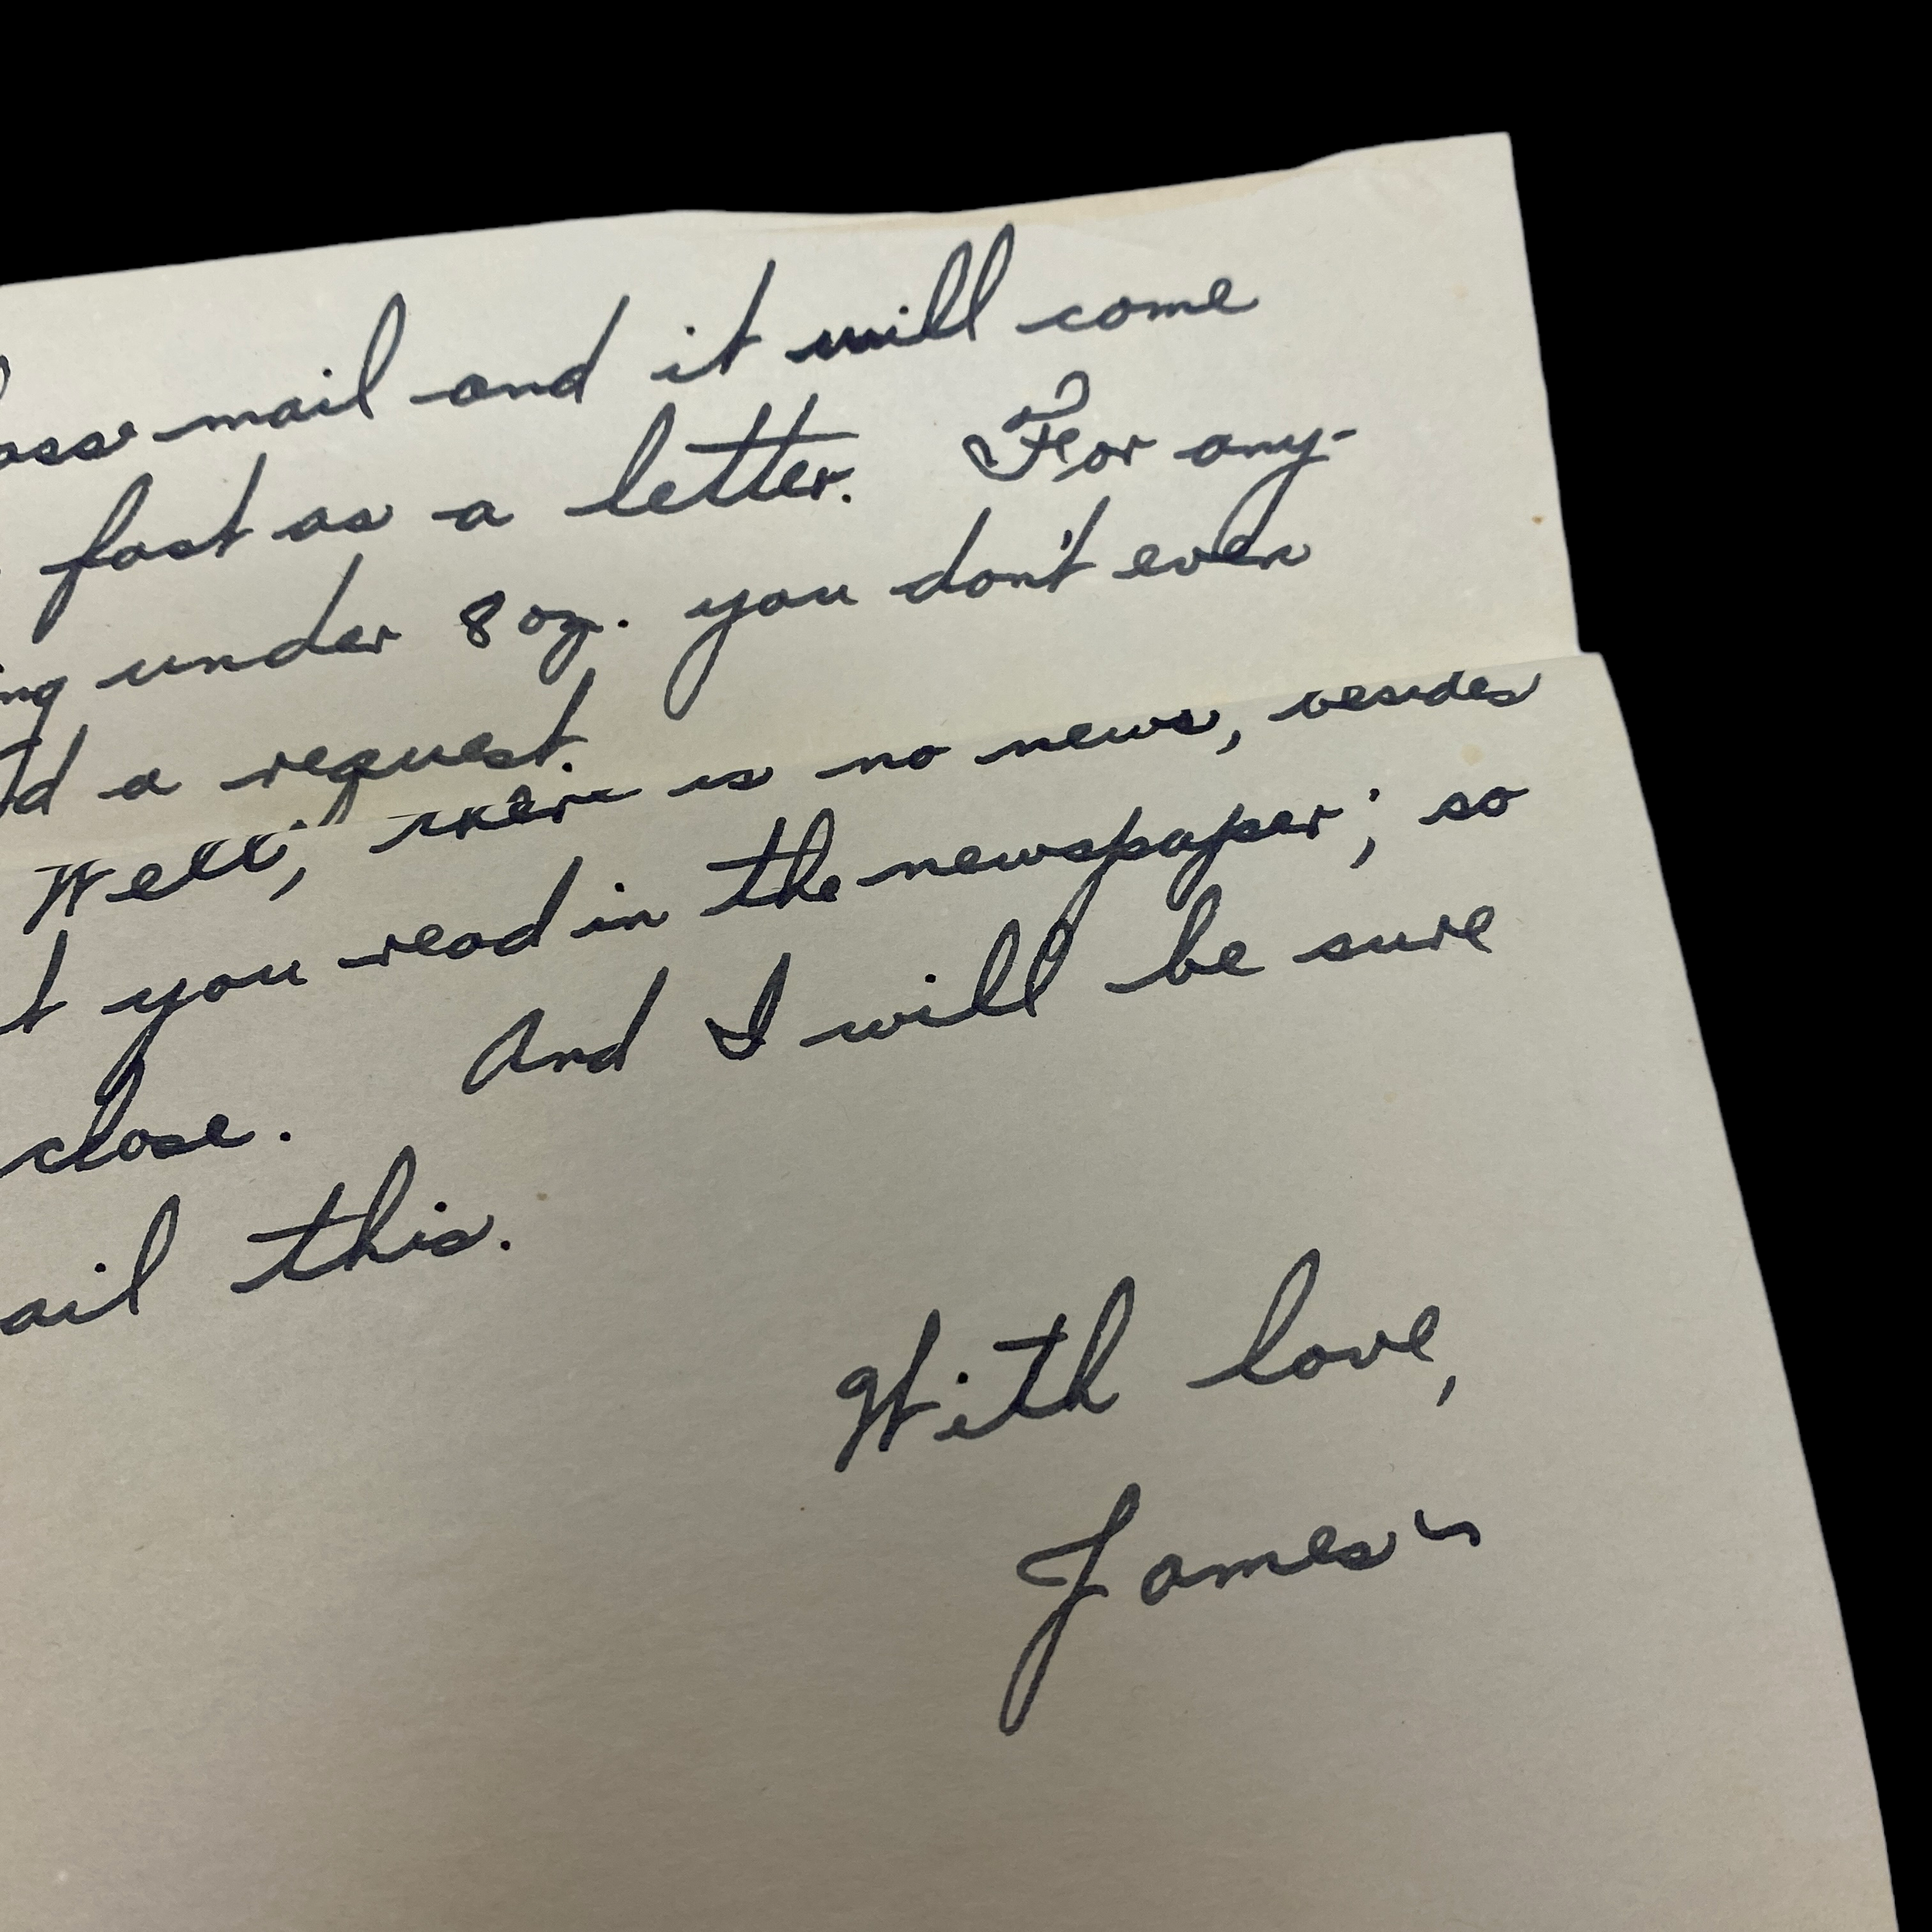 ass mail and it will come
fast as a letter. For any-
ing under 8 oz. you don't even
d a request.
Well, there is no news, besides
t you read in the newspaper; so
close. And I will be sure
ail this.
With love,
James